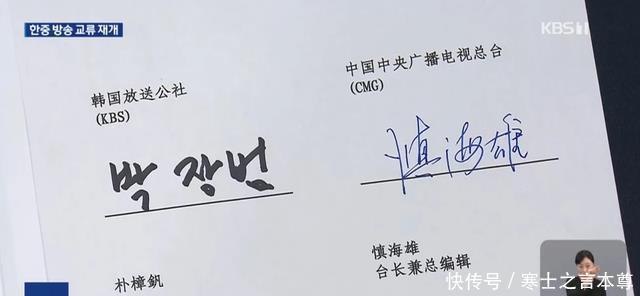 한중 방송 교류 재개
KBS 1
韩国放送公社
(KBS)
박장범
朴樟釩
中国中央广播电视总台
(CMG)
慎海雄
慎海雄
台长兼总编辑
快传号／寒士之言本尊